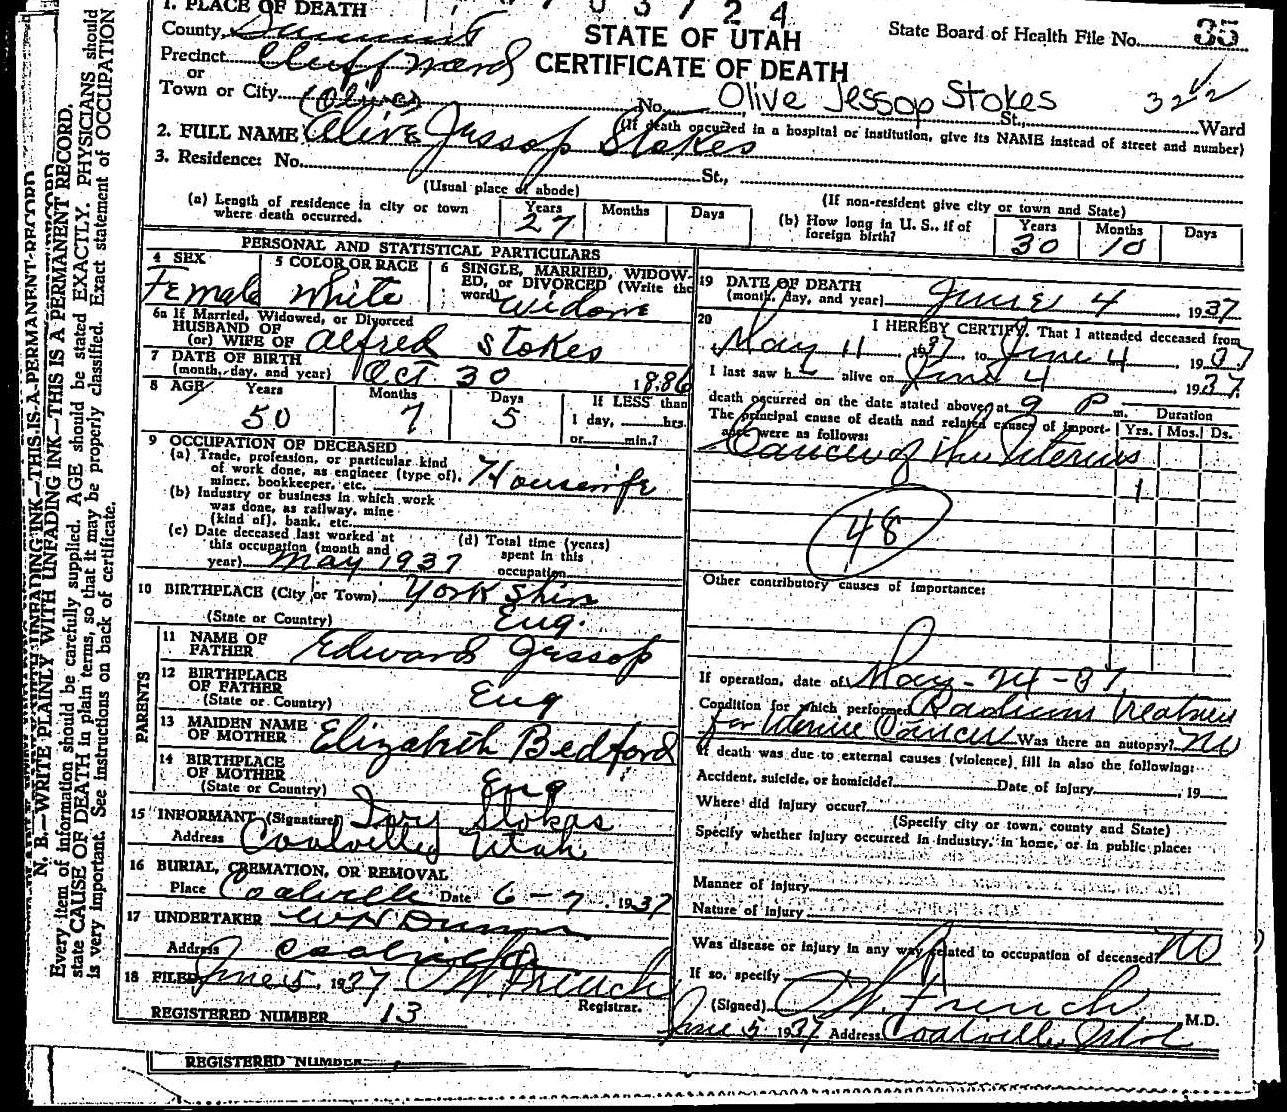 1. PLACE OF DEATH 703724
County Summit STATE OF UTAH State Board of Health File No. 35
Precinct Cluff Ward CERTIFICATE OF DEATH
or
Town or City No. Olive Jessop Stokes St., Ward
(Olive) (If death occurred in a hospital or institution, give its NAME instead of street and number)
2. FULL NAME Alive Jessop Stokes
3. Residence: No. St.,
(Usual place of abode) (If non-resident give city or town and State)
(a) Length of residence in city or town where death occurred. Years 27 Months Days
(b) How long in U. S., if of foreign birth? Years 30 Months 10 Days
PERSONAL AND STATISTICAL PARTICULARS
4 SEX Female
5 COLOR OR RACE White
6 SINGLE, MARRIED, WIDOW-
ED, or DIVORCED (Write the
word) Widow
6a If Married, Widowed, or Divorced
HUSBAND OF
(or) WIFE OF Alfred Stokes
7 DATE OF BIRTH
(month, day, and year) Oct 30 1886
8 AGE Years 50 Months 7 Days 5
If LESS than
1 day, hrs.
or min.?
9 OCCUPATION OF DECEASED
(a) Trade, profession, or particular kind
of work done, as engineer (type of),
miner, bookkeeper, etc. Housewife
(b) Industry or business in which work
was done, as railway, mine
(kind of), bank, etc.
(c) Date deceased last worked at
this occupation (month and
year) May 1937
(d) Total time (years)
spent in this
occupation
10 BIRTHPLACE (City or Town) Yorkshire
(State or Country) Eng.
PARENTS
11 NAME OF
FATHER Edward Jessop
12 BIRTHPLACE
OF FATHER Eng
(State or Country)
13 MAIDEN NAME
OF MOTHER Elizabeth Bedford
14 BIRTHPLACE
OF MOTHER
(State or Country) Eng
15 INFORMANT (Signature) Ivory Stokes
Address Coalville Utah
16 BURIAL, CREMATION, OR REMOVAL
Place Coalville Date 6-7 1937
17 UNDERTAKER
Address Coalville
18 FILED June 5 1937 French
Registrar.
REGISTERED NUMBER 13
19 DATE OF DEATH
(month, day, and year) June 4 1937
20 I HEREBY CERTIFY, That I attended deceased from
May 11 1937 to June 4 1937
I last saw h alive on June 4 1937
death occurred on the date stated above, at 9 P m. Duration
The principal cause of death and related causes of import-
ance were as follows: Yrs. Mos. Ds.
Cancer of the Uterus
1
48
Other contributory causes of importance:
If operation, date of May-24-37
Condition for which performed Radium Treatment
for Uterine Cancer Was there an autopsy? No
If death was due to external causes (violence) fill in also the following:
Accident, suicide, or homicide? Date of injury , 19
Where did injury occur?
(Specify city or town, county and State)
Specify whether injury occurred in industry, in home, or in public place:
Manner of injury
Nature of injury
Was disease or injury in any way related to occupation of deceased? No
If so, specify
(Signed) French M.D.
June 5 1937 Address Coalville, Utah
REGISTERED NUMBER
N. B.—WRITE PLAINLY WITH UNFADING INK—THIS IS A PERMANENT RECORD.
Every item of information should be carefully supplied. AGE should be stated EXACTLY. PHYSICIANS should
state CAUSE OF DEATH in plain terms, so that it may be properly classified. Exact statement of OCCUPATION
is very important. See instructions on back of certificate.